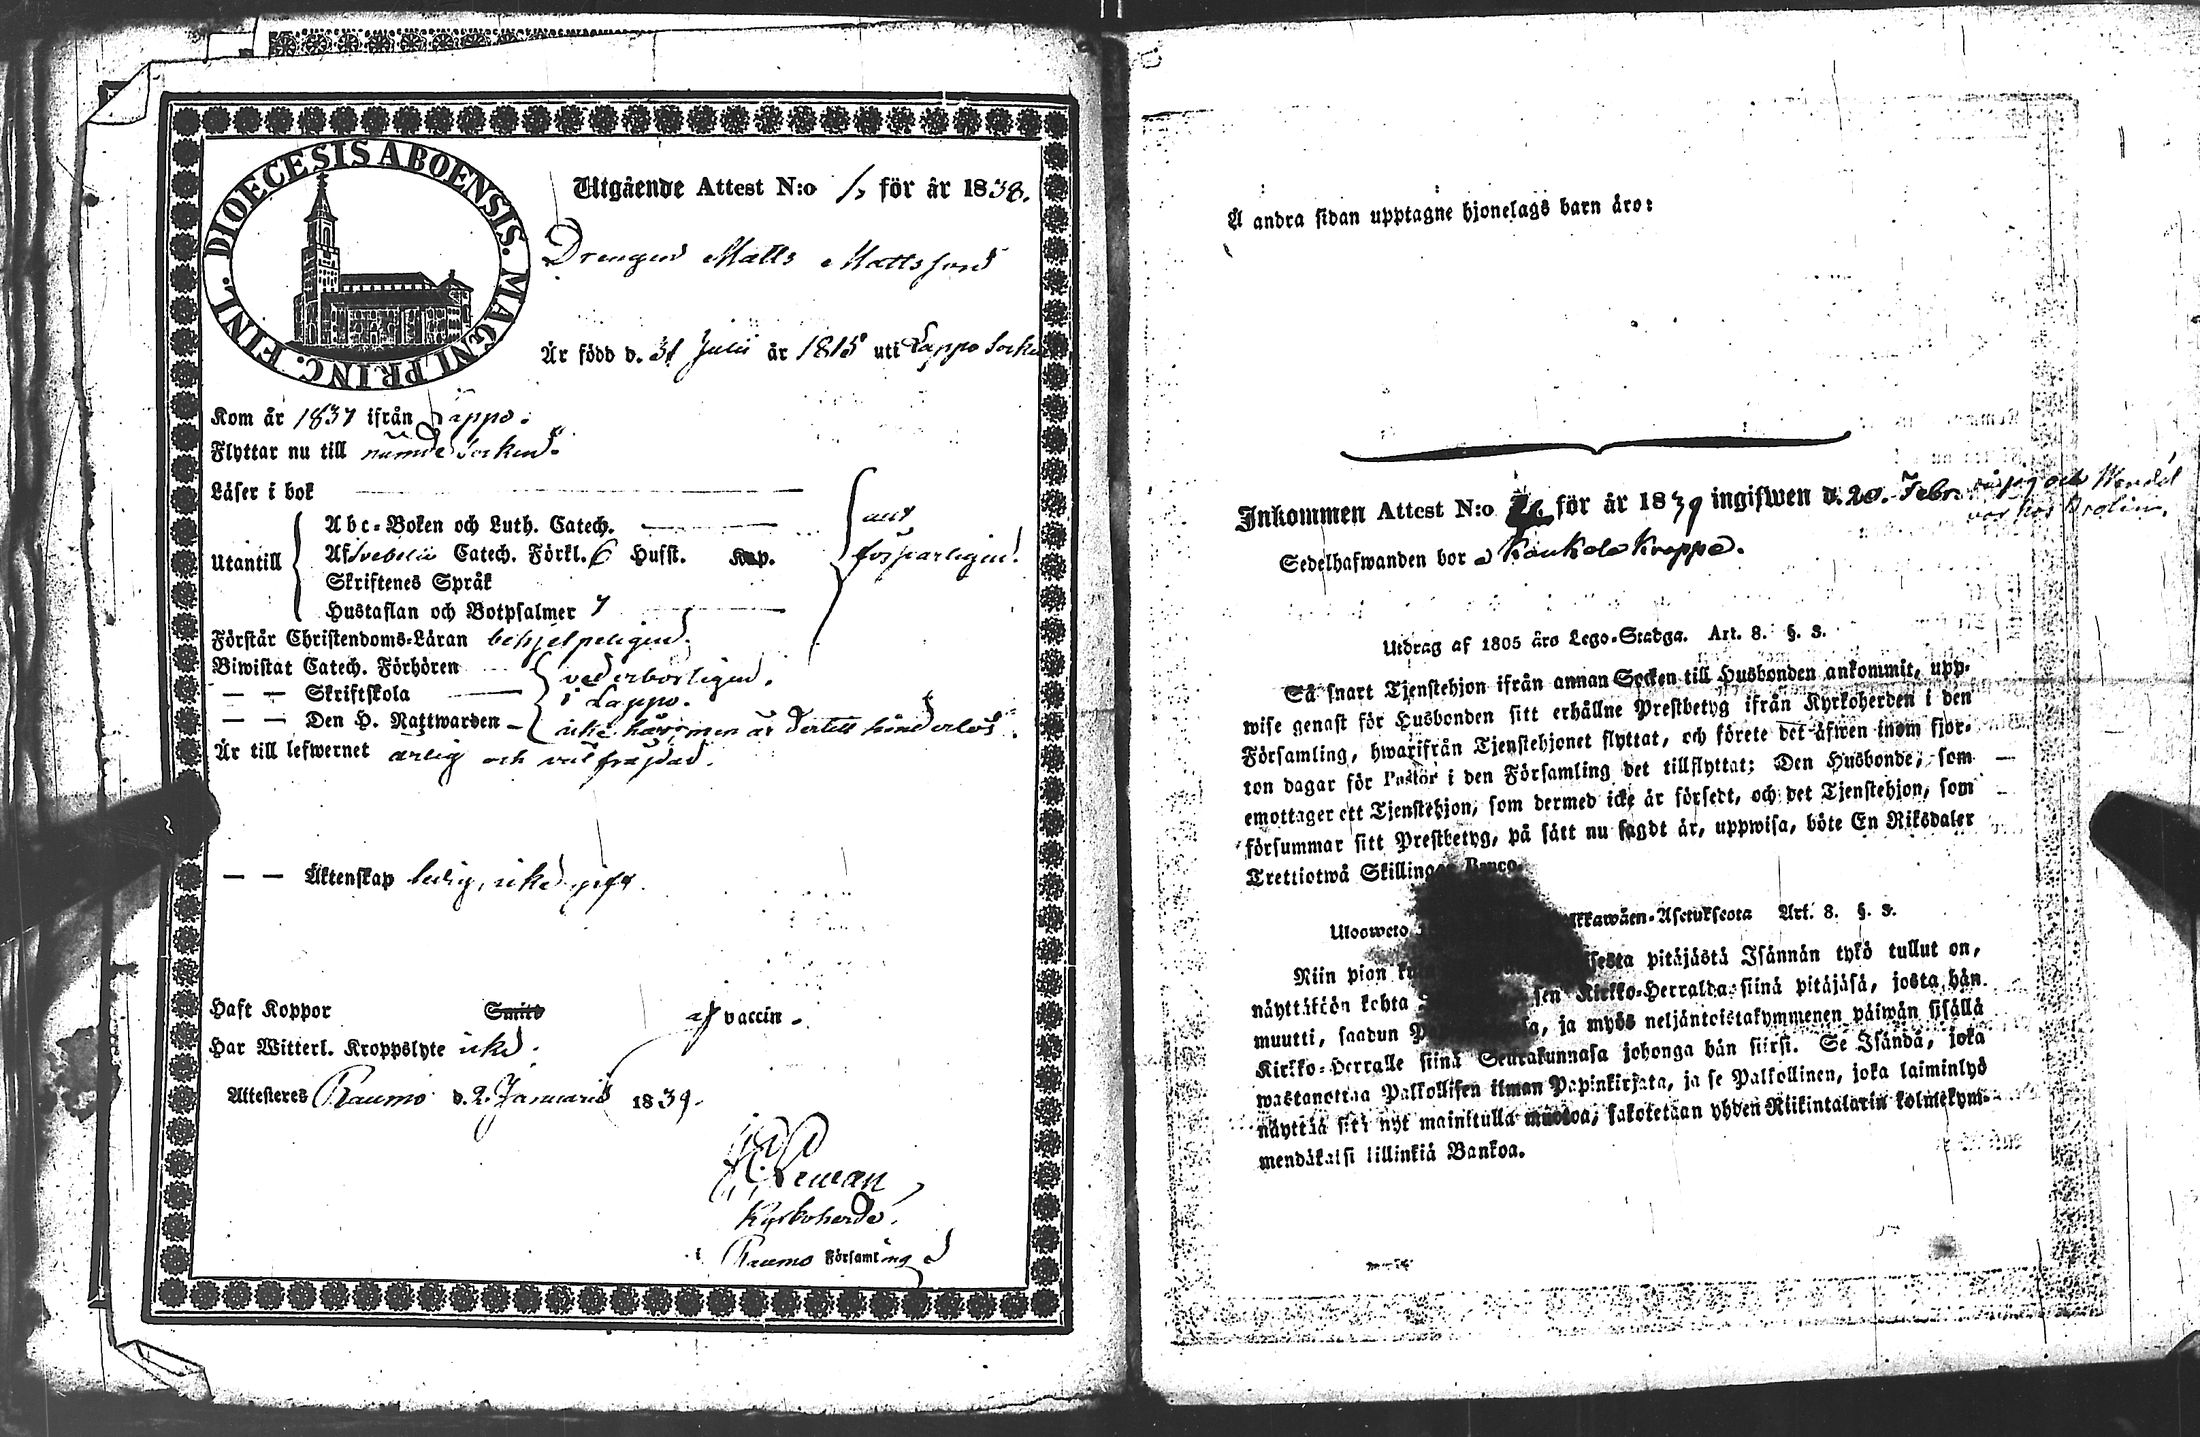 DIOECESIS ABOENSIS. MAGNI PRINC. FINL.
Utgående Attest N:o 1, för år 1838.
Drengen Matts Mattsson
Är född d. 31 Julii år 1815 uti Lappo Socken
Kom år 1837 ifrån Lappo.
Flyttar nu till nämde Socken.
Läser i bok
Utantill
Abc-Boken och Luth. Catech.
Af Svebelii Catech. Förkl. 6 Hufst. Kap.
Skriftenes Språk
Hustaflan och Botpsalmer 7
Förstår Christendoms-Läran behjelpeligen.
Biwistat Catech. Förhören
vederbörligen.
— — Skriftskola
i Lappo.
— — Den H. Nattwarden
icke här, men är dertill hinderlös.
Är till lefwernet ärlig och väl frejdad.
— — Äktenskap ledig, icke gift.
Haft Koppor Smitt af vaccin.
Har Witterl. Kroppslyte icke.
Attesteres Raumo d. 2 Januarii 1839.
Kyrkoherde.
i Raumo Församling
Å andra sidan upptagne hjonelags barn äro:
Inkommen Attest N:o för år 1839 ingifwen d. 20. Febr.
Sedelhafwanden bor å
Utdrag af 1805 års Lego-Stadga. Art. 8. §. 3.
Så snart Tjenstehjon ifrån annan Socken till Husbonden ankommit, upp-
wise genast för Husbonden sitt erhållne Prestbetyg ifrån Kyrkoherden i den
Församling, hwarifrån Tjenstehjonet flyttat, och förete det äfwen inom fjor-
ton dagar för Pastor i den Församling det tillflyttat; Den Husbonde, som
emottager ett Tjenstehjon, som dermed icke är försedt, och det Tjenstehjon, som
försummar sitt Prestbetyg, på sätt nu sagdt är, uppwisa, böte En Riksdaler
Trettiotwå Skillingar Banco.
Ulosweto Art. 8. §. 3.
Niin pian pitäjästä Isännän tykö tullut on,
näyttäkään kohta Kirkko-Herralda siinä pitäjäsä, josta hän
muutti, saadun ja myös neljäntoistakymmenen päiwän sisällä
Kirkko-Herralle siinä Seurakunnasa johonga hän siirsi. Se Isändä, joka
wastanottaa Palkollisen ilman Papinkirjata, ja se Palkollinen, joka laiminlyö
näyttää sitä nyt mainitulla muotoa, sakotetaan yhden Riikintalarin kolmekym-
mendäkaksi killinkiä Bankoa.